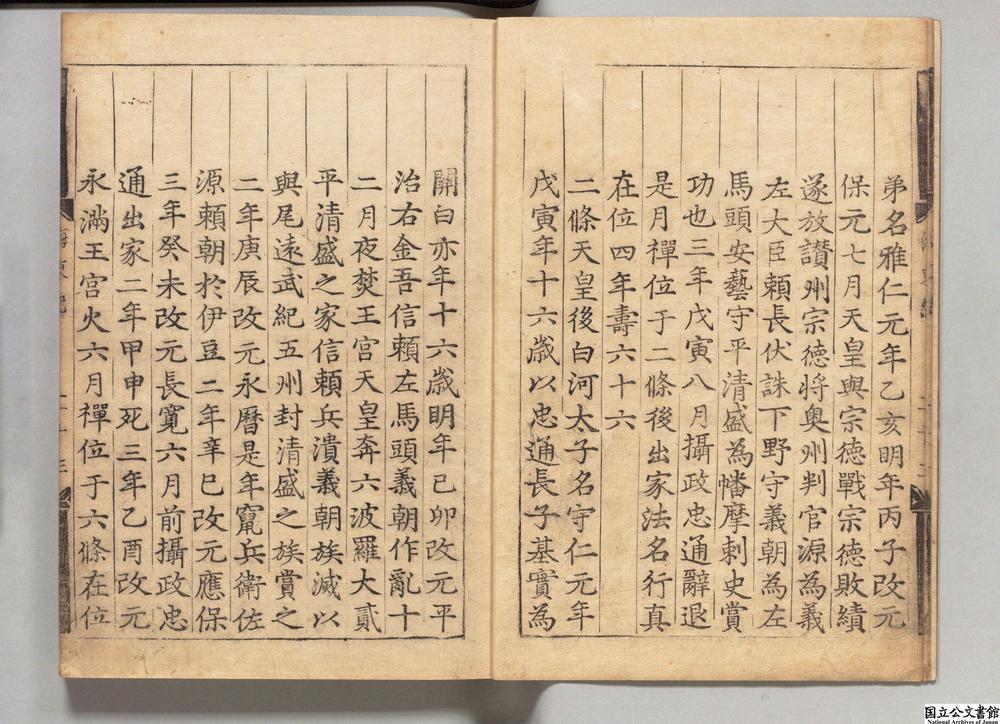 弟名雅仁元年乙亥明年丙子改元
保元七月天皇與宗德戰宗德敗績
遂放讃州宗德將奧州判官源為義
左大臣賴長伏誅下野守義朝為左
馬頭安藝守平清盛為幡摩刺史賞
功也三年戊寅八月攝政忠通辭退
是月禪位于二條後出家法名行真
在位四年壽六十六
二條天皇後白河太子名守仁元年
戊寅年十六歳以忠通長子基實為
關白亦年十六歳明年己卯改元平
治右金吾信賴左馬頭義朝作亂十
二月夜焚王宮天皇奔六波羅大貳
平清盛之家信賴兵潰義朝族滅以
與尾遠武紀五州封清盛之族賞之
二年庚辰改元永曆是年竄兵衛佐
源賴朝於伊豆二年辛巳改元應保
三年癸未改元長寬六月前攝政忠
通出家二年甲申死三年乙酉改元
永滿王宮火六月禪位于六條在位
海東紀
二十三
国立公文書館
National Archives of Japan